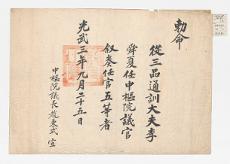 勅命
從三品通訓大夫李
舜夏任中樞院議官
叙奏任官五等者
光武三年九月二十五日
中樞院議長 趙秉式 宣